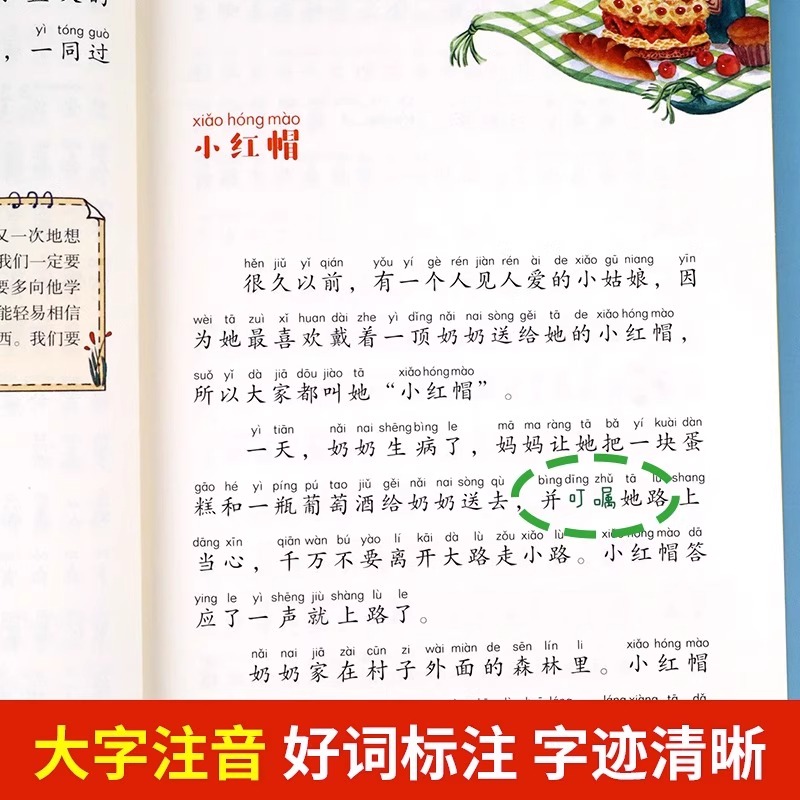 yì tóng guò
，一同过
又一次地想
我们一定要
要多向他学
能轻易相信
西。我们要
xiǎo hóng mào
小红帽
hěn jiǔ yǐ qián yǒu yí gè rén jiàn rén ài de xiǎo gū niang yīn
很久以前，有一个人见人爱的小姑娘，因
wèi tā zuì xǐ huan dài zhe yì dǐng nǎi nai sòng gěi tā de xiǎo hóng mào
为她最喜欢戴着一顶奶奶送给她的小红帽，
suǒ yǐ dà jiā dōu jiào tā xiǎo hóng mào
所以大家都叫她“小红帽”。
yì tiān nǎi nai shēng bìng le mā ma ràng tā bǎ yí kuài dàn
一天，奶奶生病了，妈妈让她把一块蛋
gāo hé yì píng pú tao jiǔ gěi nǎi nai sòng qù bìng dīng zhǔ tā lù shang
糕和一瓶葡萄酒给奶奶送去，并叮嘱她路上
dāng xīn qiān wàn bú yào lí kāi dà lù zǒu xiǎo lù xiǎo hóng mào dā
当心，千万不要离开大路走小路。小红帽答
ying le yì shēng jiù shàng lù le
应了一声就上路了。
nǎi nai jiā zài cūn zi wài miàn de sēn lín li xiǎo hóng mào
奶奶家在村子外面的森林里。小红帽
大字注音 好词标注 字迹清晰